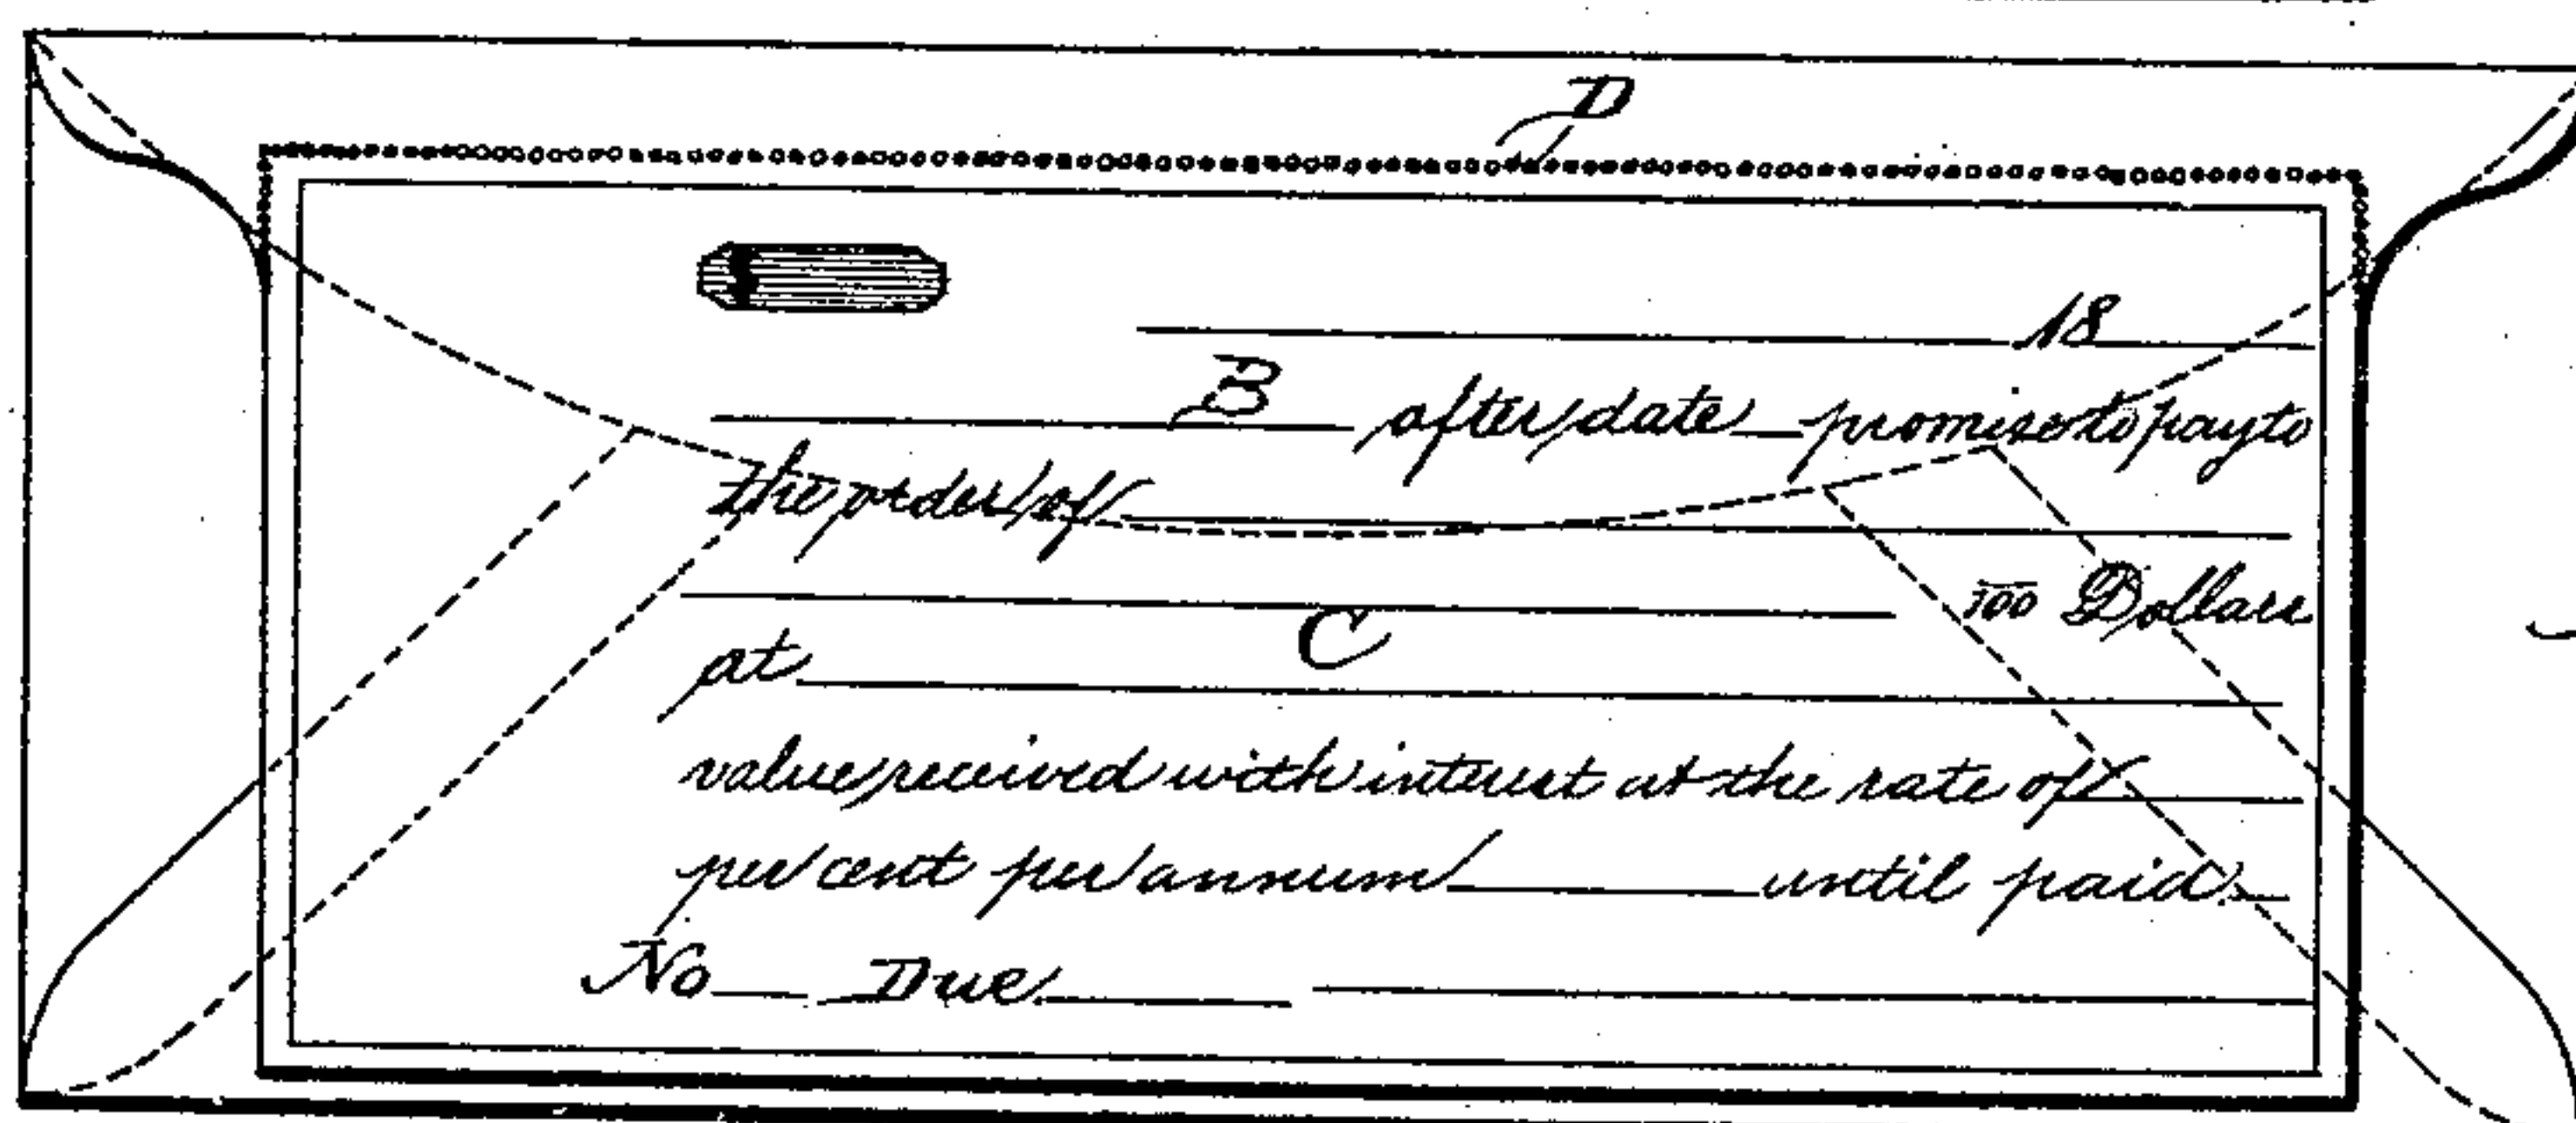 D
$
18
B after date promise to pay to
the order of
100 Dollars
C
at
value received with interest at the rate of
per cent per annum until paid.
No Due